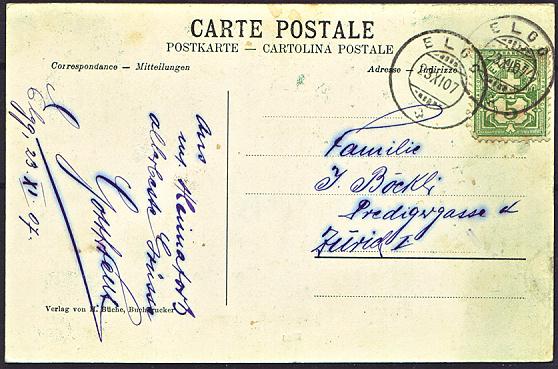 CARTE POSTALE
POSTKARTE — CARTOLINA POSTALE
Correspondance — Mitteilungen
Adresse — Indirizzo
ELGG
23 XI 07
ELGG
5
Elgg, 23. XI. 07.
Aus
uns. Heimatort
allerbeste Grüsse
Familie
J. Böckli
Predigergasse
Zürich I
Verlag von H. Büche, Buchdrucker